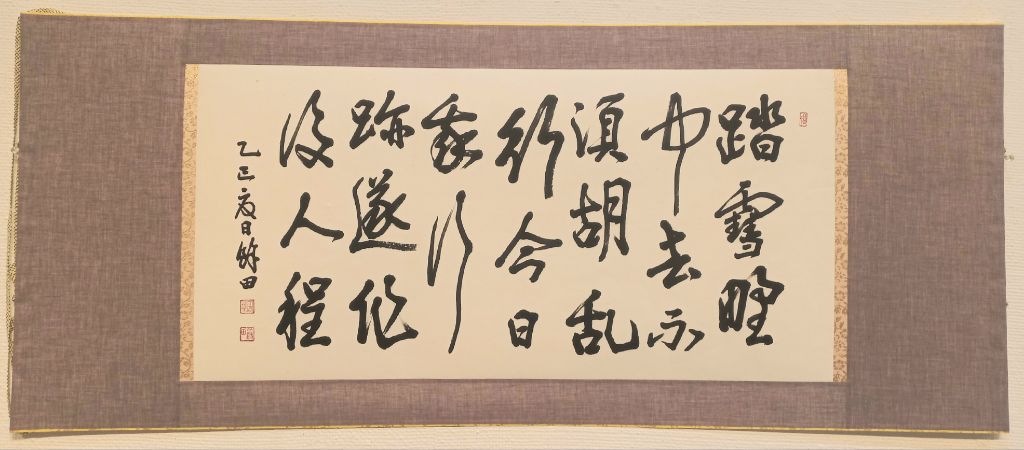 踏雪野
中去不
須胡乱
行今日
我行
跡遂作
後人程
乙巳夏日餘田